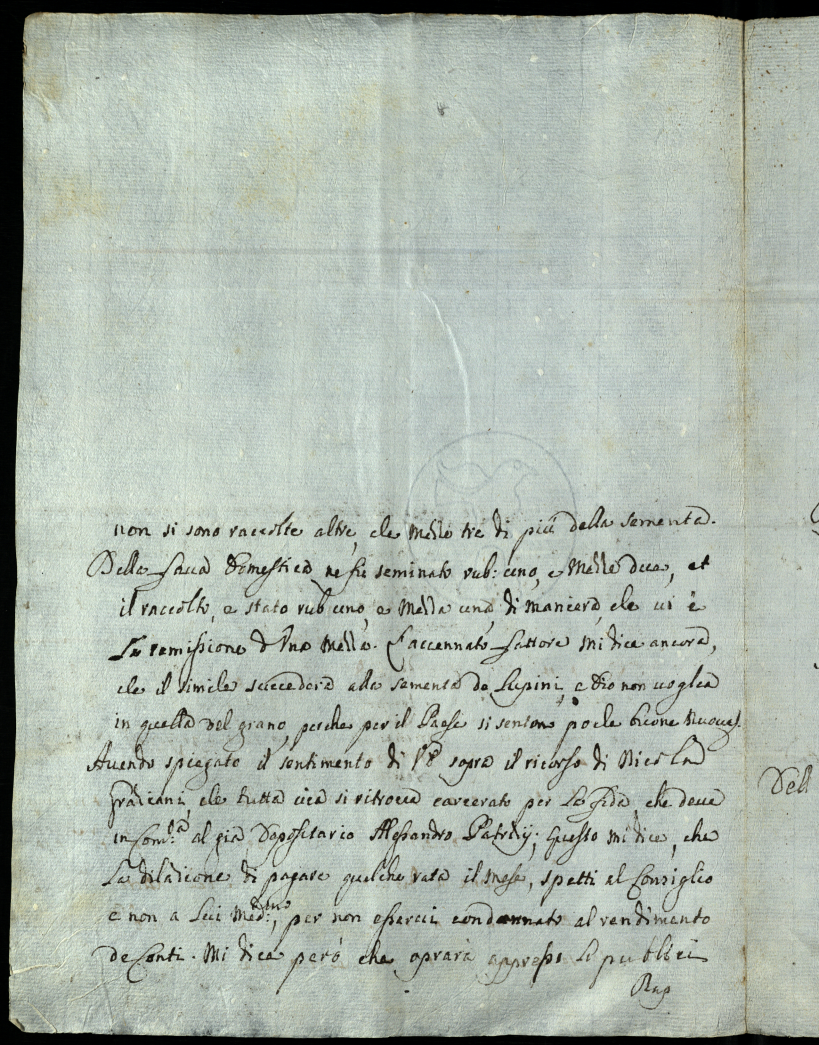 non si sono raccolte altre, che Melle tre di più della sementa.
Della fava Domestica ne fu seminato rub: uno, e Melle due, et
il raccolto, e stato rub uno, e Mella una, di maniera, che vi è
La remissione d'una Mella. L'accennato fattore mi dice ancora,
che il simile succederà alla sementa de Lupini, e Dio non voglia
in quella del grano, perche per il Paese si senton poche buone Nuove.
Avendo spiegato il sentimento di V.E. sopra il ricorso di Nicola
Graziani, che tutta via si ritrova carcerato per La fida, che deve
in Com.tà al già Depositario Alessandro Patrizij; Questo mi dice, che
La dilazione di pagare qualche rata il mese, spetti al Consiglio
e non a Lui Med:mo, per non esserci condannato al rendimento
de Conti. Mi dice però che oprarà appresso Li publici
Rap
Dell